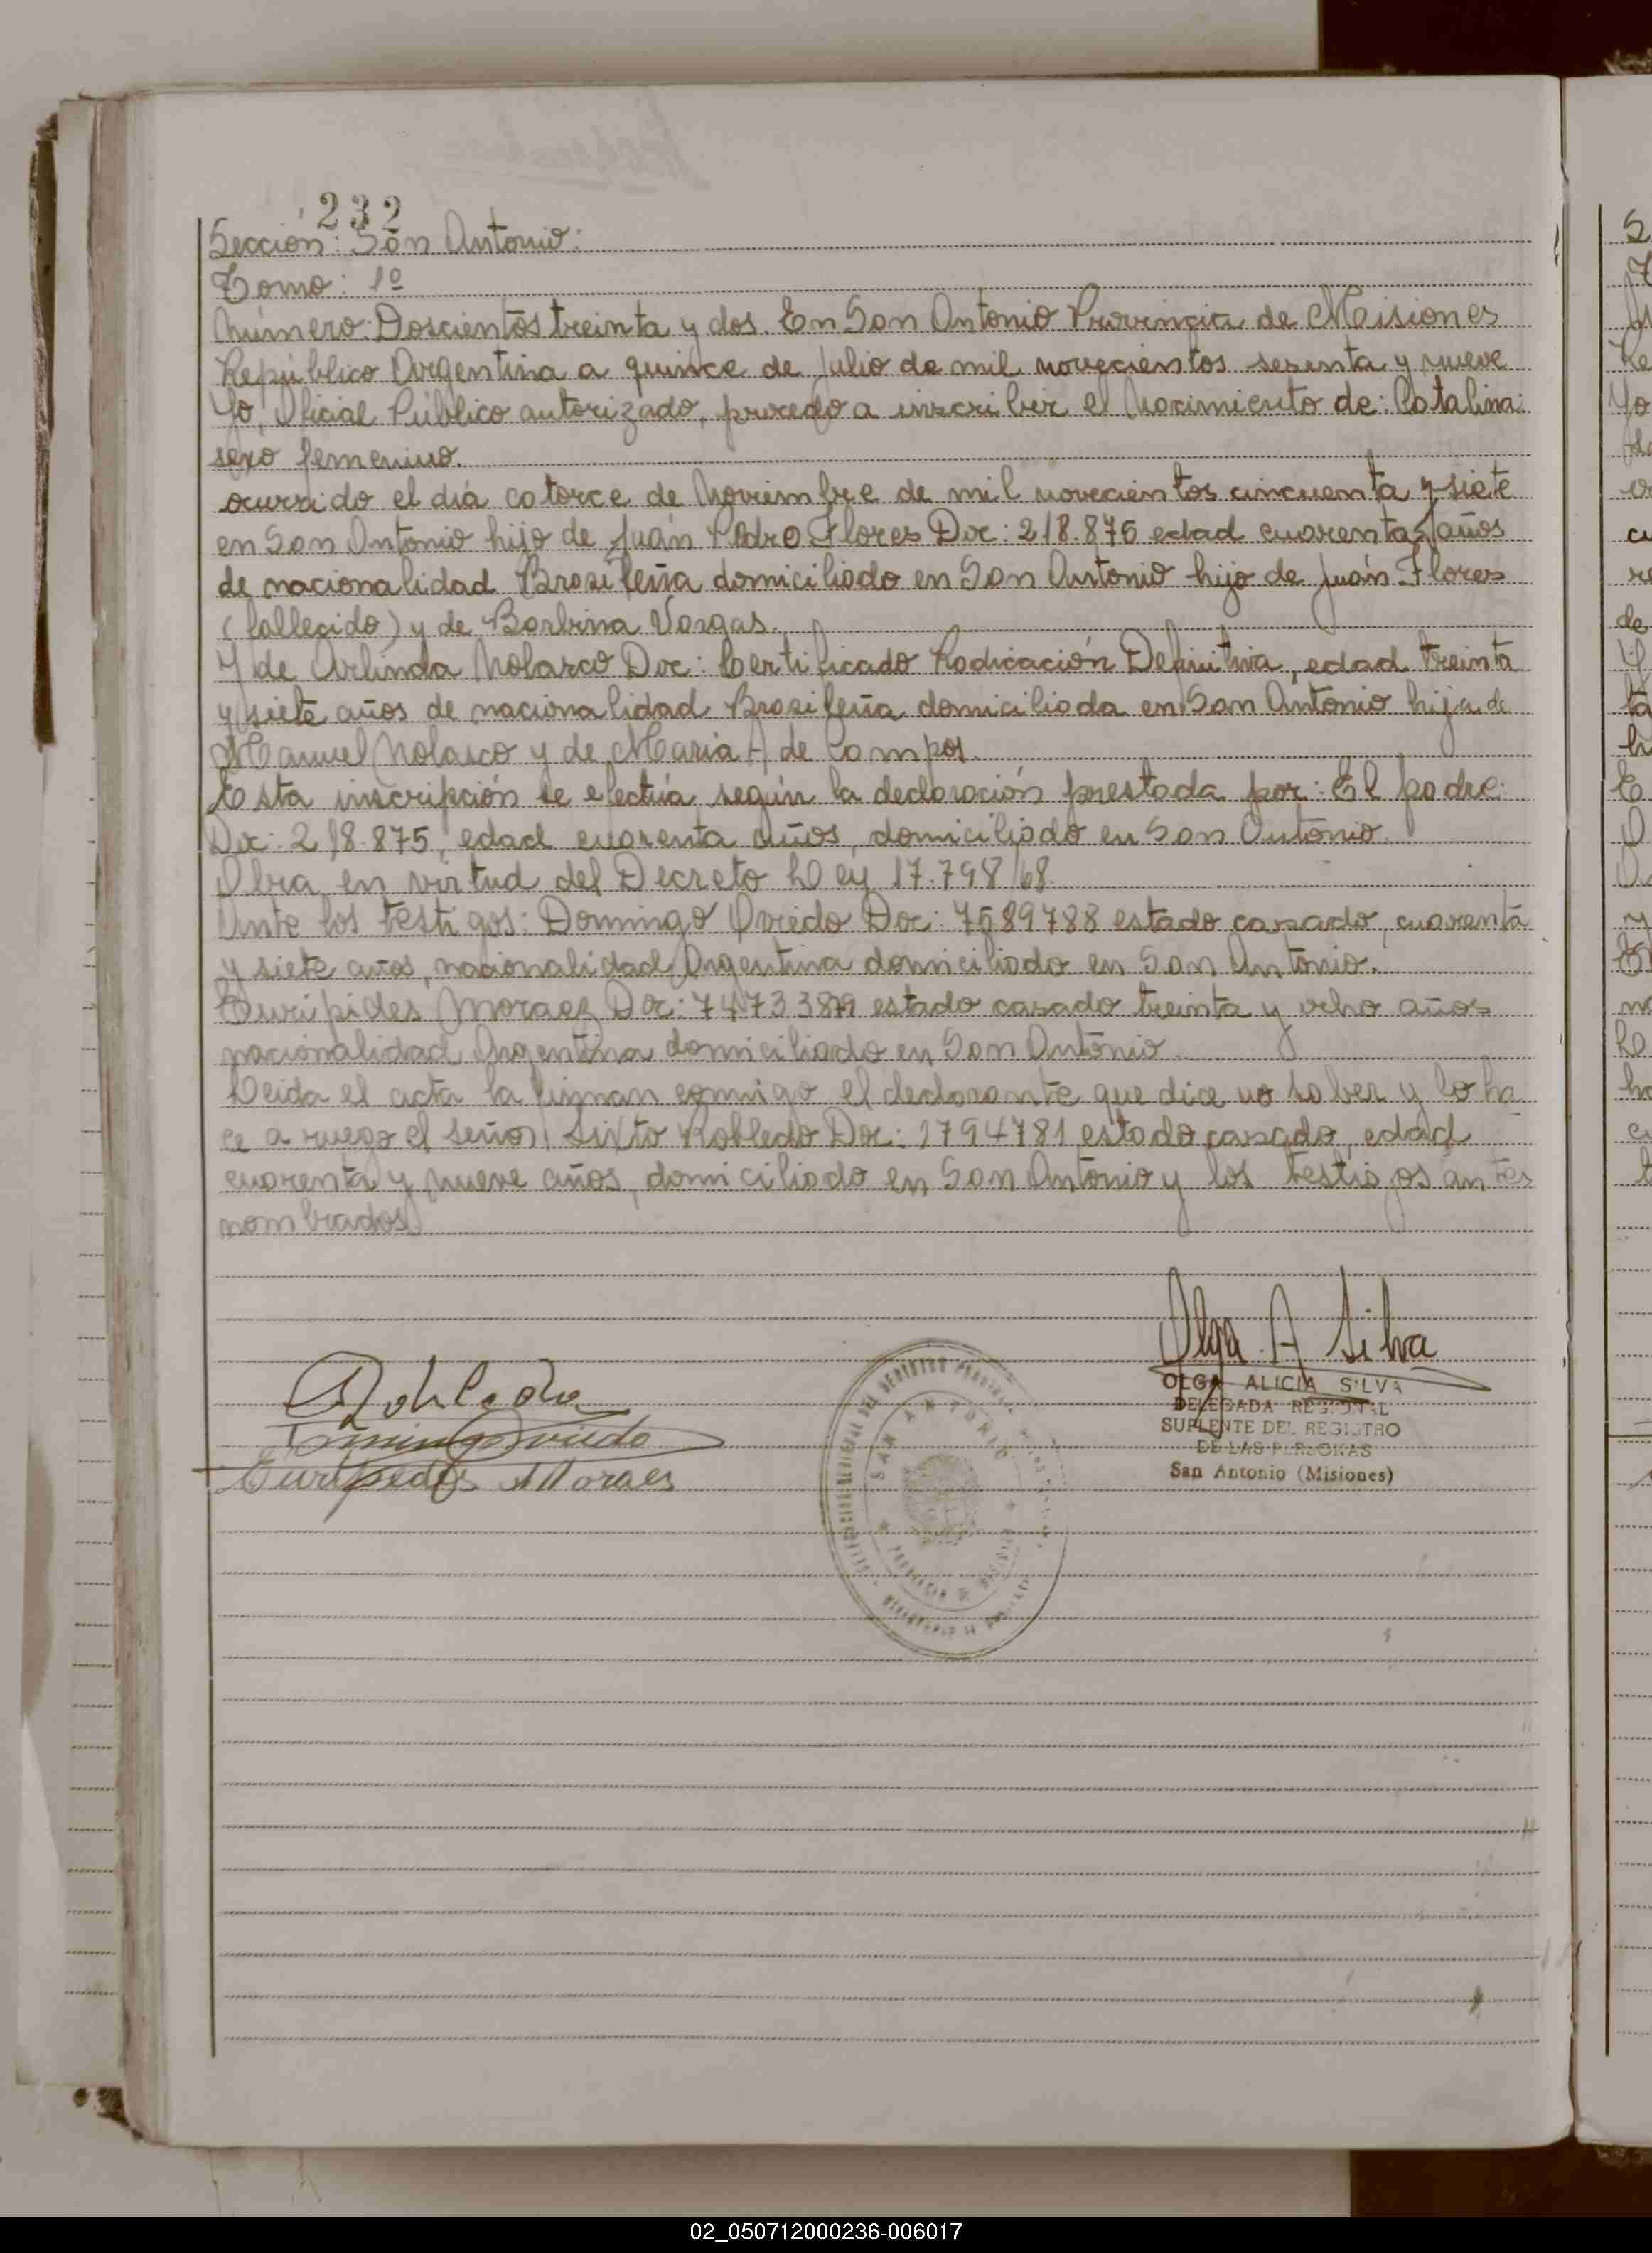 232
Sección: San Antonio:
Tomo: 1º
Número: Doscientos treinta y dos. En San Antonio Provincia de Misiones
República Argentina a quince de Julio de mil novecientos sesenta y nueve
Yo, Oficial Público autorizado, procedo a inscribir el Nacimiento de: Catalina:
sexo femenino.
ocurrido el día catorce de Noviembre de mil novecientos cincuenta y siete
en San Antonio hijo de Juán Pedro Flores Doc: 218.875 edad cuarenta años
de nacionalidad Brasileña domiciliado en San Antonio hijo de Juán Flores
(fallecido) y de Barbina Vargas.
Y de Arlinda Nolasco Doc: Certificado Radicación Definitiva, edad treinta
y siete años de nacionalidad Brasileña domiciliada en San Antonio hija de
Manuel Nolasco y de María A de Campos.
Esta inscripción se efectúa según la declaración prestada por: El padre:
Doc: 218.875, edad cuarenta años, domiciliado en San Antonio.
Obra en virtud del Decreto Ley 17.798/68.
Ante los testigos: Domingo Oviedo Doc: 7589788 estado casado, cuarenta
y siete años, nacionalidad Argentina domiciliado en San Antonio.
Euripides Moraez Doc: estado casado treinta y ocho años
nacionalidad Argentina domiciliado en San Antonio.
Leida el acta la firman conmigo el declarante que dice no saber y lo ha
ce a ruego el señor, Sixto Robledo Doc: 1794781 estado casado, edad
cuarenta y nueve años, domiciliado en San Antonio y los testigos antes
nombrados
Olga A Silva
OLGA ALICIA SILVA
DELEGADA REGIONAL
SUPLENTE DEL REGISTRO
DE LAS PERSONAS
San Antonio (Misiones)
Robledo
Domingo Oviedo
Euripedes Moraes
SAN ANTONIO
PROVINCIA DE MISIONES
02_050712000236-006017